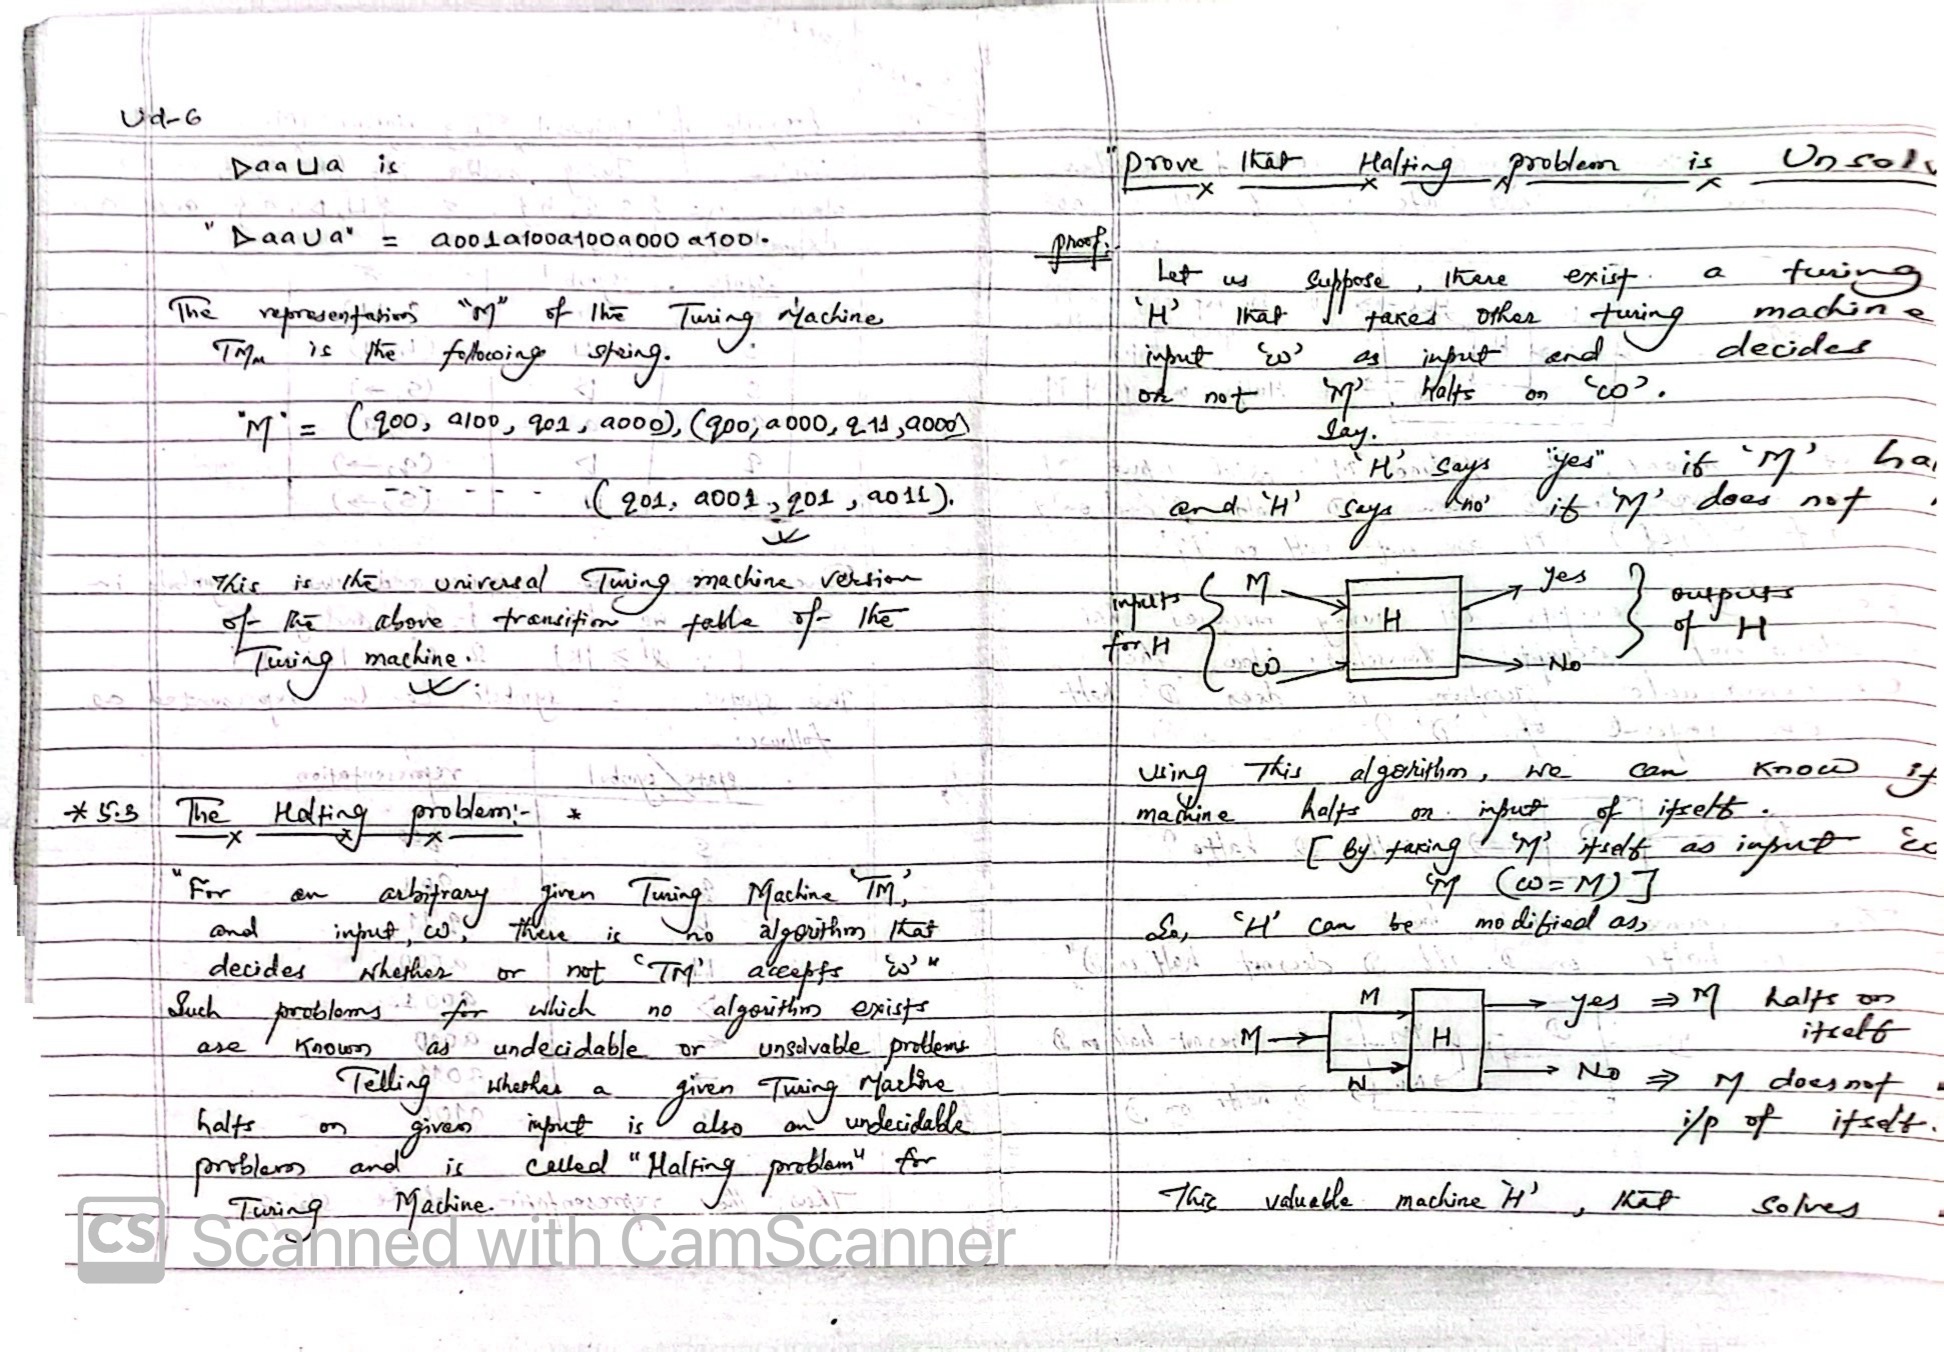 Ud-6
▷aa⊔a is
"▷aa⊔a" = a001a100a100a000a100.
The representation "M" of the Turing Machine
TMm is the following string.
"M" = (q00, a100, q01, a000), (q00, a000, q11, a000)
- - - - - - (q01, a001, q01, a011).
This is the universal Turing machine version
of the above transition table of the
Turing machine.
* 5.3 The Halting problem:- *
"For an arbitrary given Turing Machine 'TM',
and input, ω, there is no algorithm that
decides whether or not 'TM' accepts 'ω'"
Such problems for which no algorithm exists
are known as undecidable or unsolvable problems
Telling whether a given Turing Machine
halts on given input is also an undecidable
problem and is called "Halting problem" for
Turing Machine.
"Prove that Halting problem is Unsolv
proof:
Let us suppose, there exist a turing
'H' that takes other turing machine
input 'ω' as input and decides
or not 'M' halts on 'ω'.
Say.
'H' says "yes" if 'M' ha
and 'H' says 'no' if 'M' does not
inputs for H { M ω H yes No } outputs of H
using this algorithm, we can know if
machine halts on input of itself.
[By taking 'M' itself as input
'M (ω=M)]
So, 'H' can be modified as,
M M H yes ⇒ M halts on
itself
W No ⇒ M does not
i/p of itself.
This valuable machine 'H', that solves
CS Scanned with CamScanner